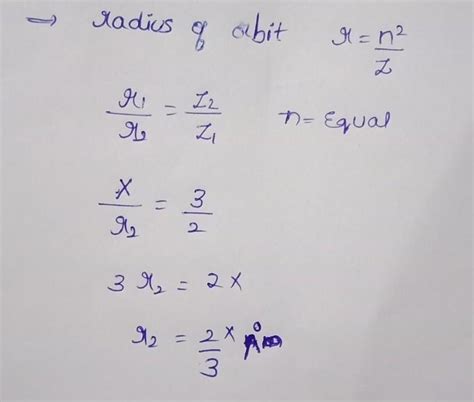 → Radius of orbit r = n²/Z
r₁/r₂ = Z₂/Z₁ n = Equal
x/r₂ = 3/2
3 r₂ = 2x
r₂ = 2x/3 Å